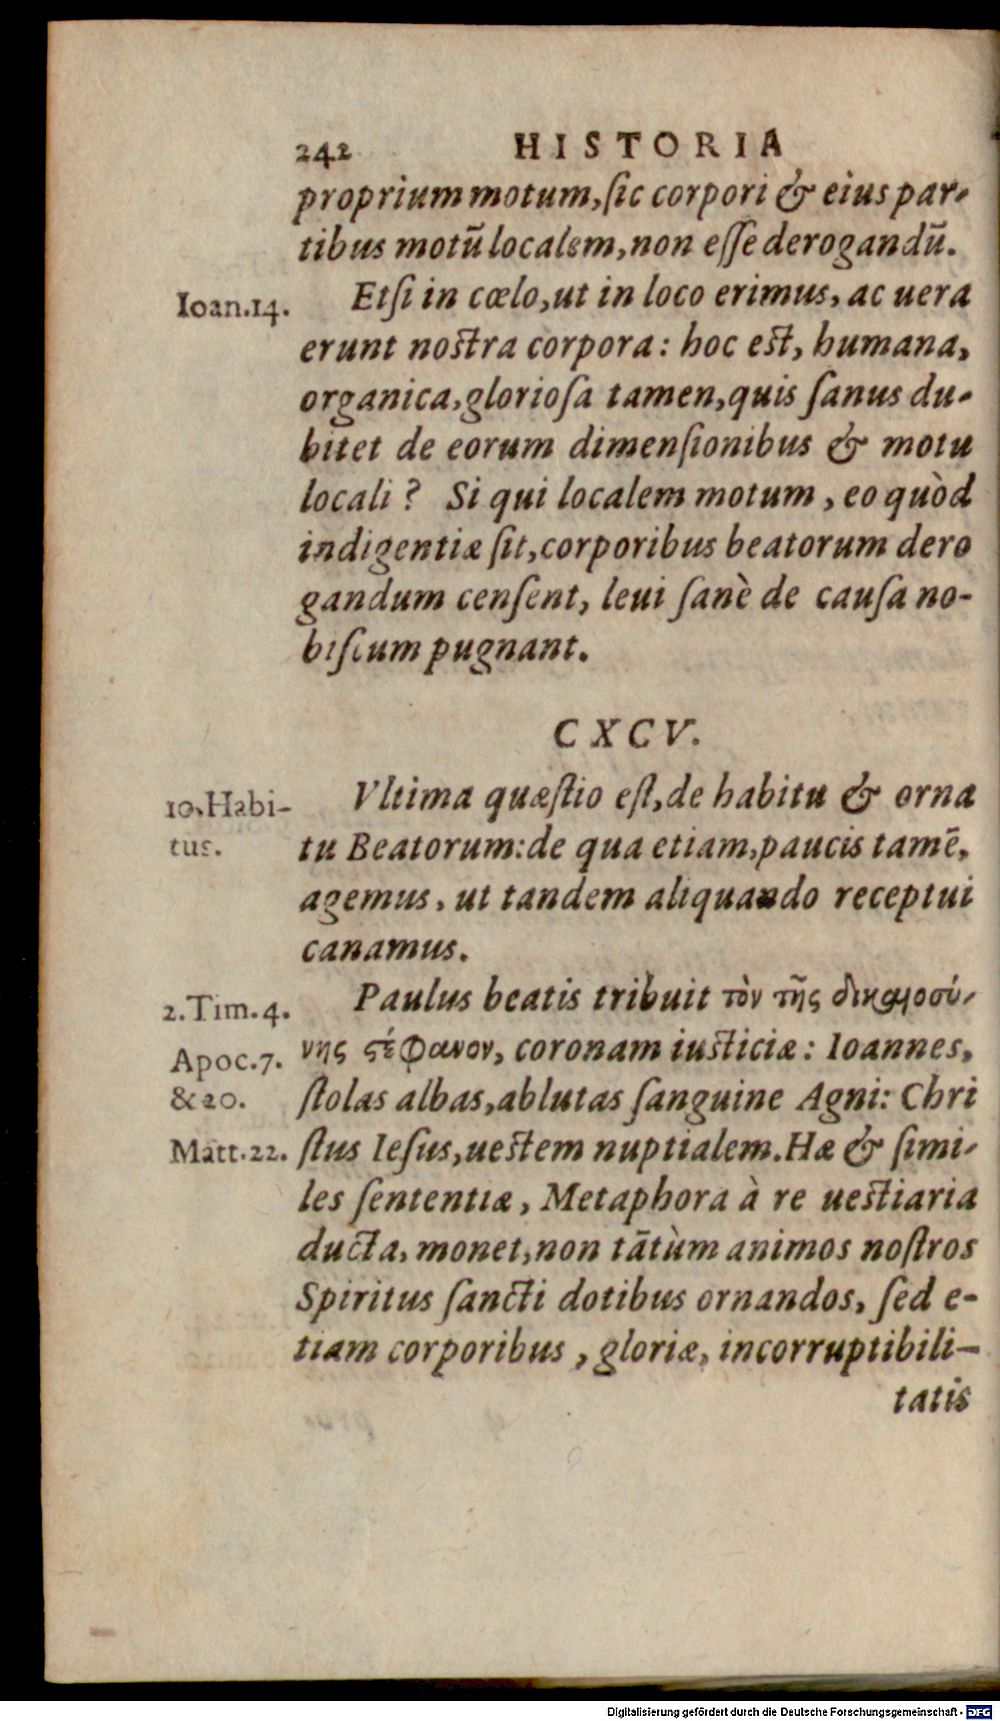 242 HISTORIA
proprium motum, ſic corpori & eius par-
tibus motũ localem, non eſſe derogandũ.
Ioan.14.
Etſi in cœlo, ut in loco erimus, ac uera
erunt noſtra corpora: hoc eſt, humana,
organica, glorioſa tamen, quis ſanus du-
bitet de eorum dimenſionibus & motu
locali? Si qui localem motum, eo quòd
indigentiæ ſit, corporibus beatorum dero
gandum cenſent, leui ſanè de cauſa no-
biſcum pugnant.
CXCV.
10. Habi-
tus.
Vltima quæſtio eſt, de habitu & orna
tu Beatorum: de qua etiam, paucis tamẽ,
agemus, ut tandem aliquando receptui
canamus.
2.Tim.4.
Apoc.7.
& 20.
Matt.22.
Paulus beatis tribuit τὸν τῆς δικαιοσύ-
νης στέφανον, coronam iuſticiæ: Ioannes,
ſtolas albas, ablutas ſanguine Agni: Chri
ſtus Ieſus, ueſtem nuptialem. Hæ & ſimi-
les ſententiæ, Metaphora à re ueſtiaria
ducta, monet, non tãtùm animos noſtros
Spiritus ſancti dotibus ornandos, ſed e-
tiam corporibus, gloriæ, incorruptibili-
tatis
Digitalisierung gefördert durch die Deutsche Forschungsgemeinschaft - DFG